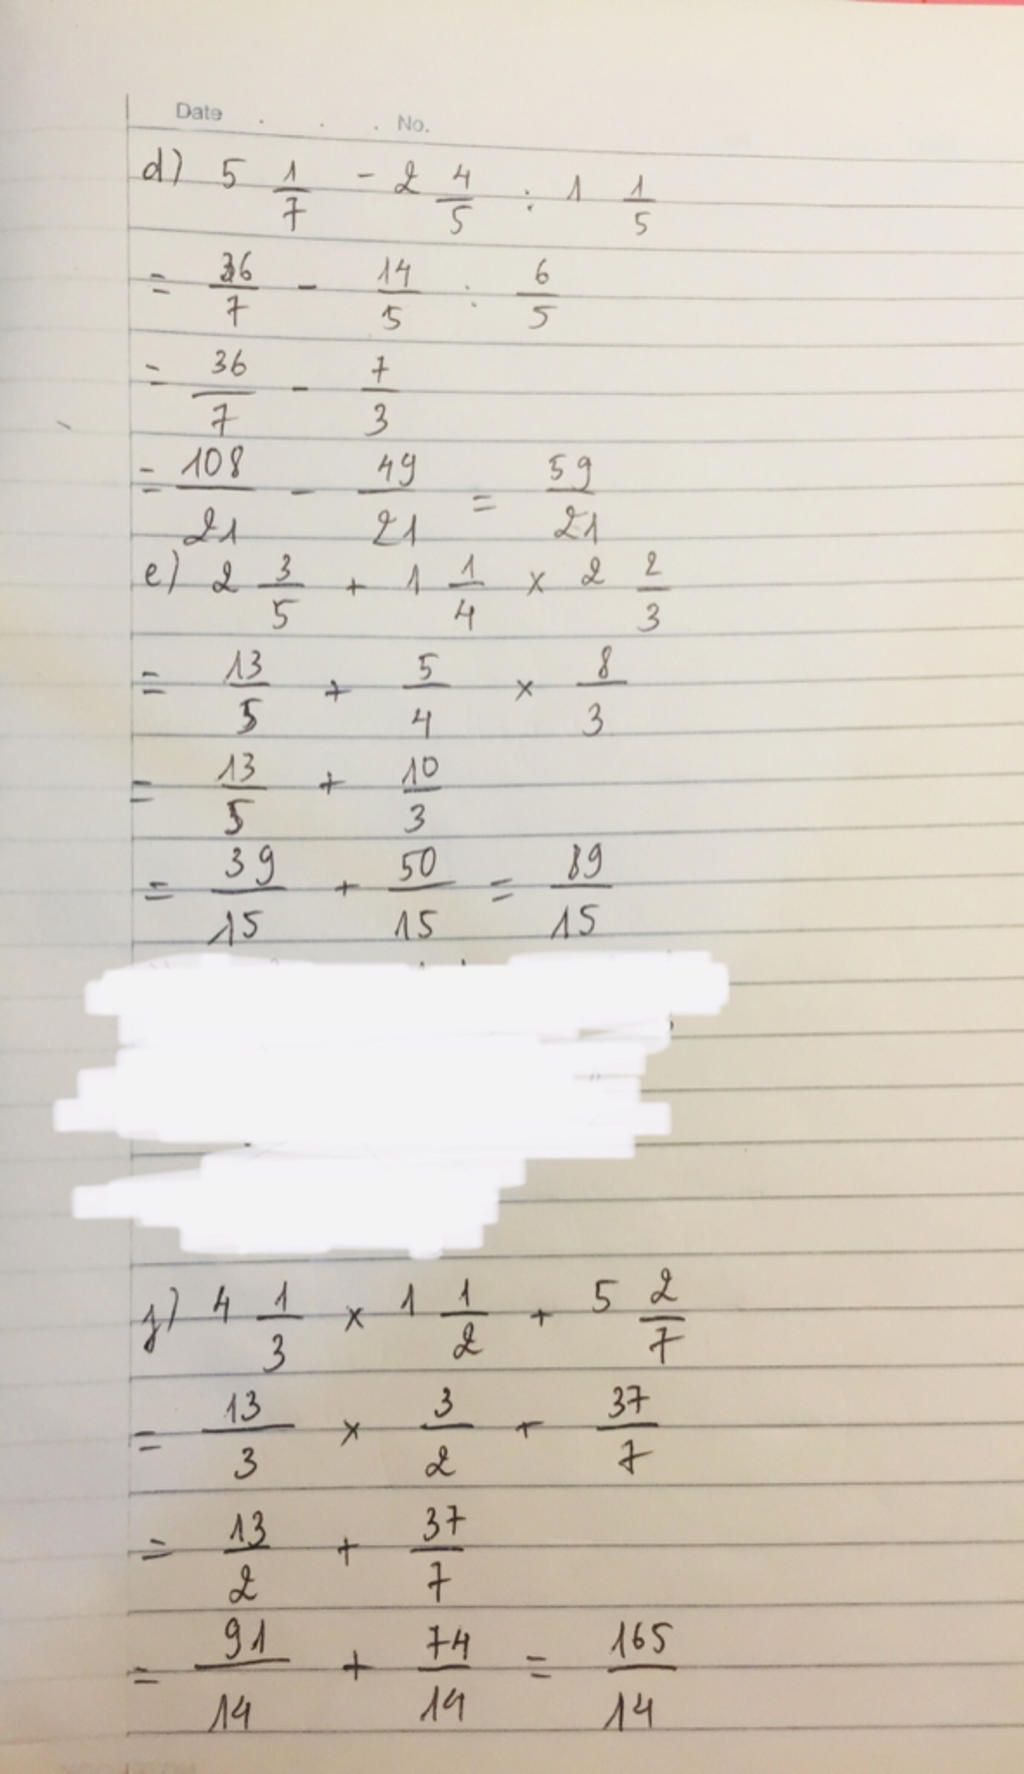 Date . . . No.
d) 5 1/7 - 2 4/5 : 1 1/5
= 36/7 - 14/5 : 6/5
= 36/7 - 7/3
= 108/21 - 49/21 = 59/21
e) 2 3/5 + 1 1/4 × 2 2/3
= 13/5 + 5/4 × 8/3
= 13/5 + 10/3
= 39/15 + 50/15 = 89/15
g) 4 1/3 × 1 1/2 + 5 2/7
= 13/3 × 3/2 + 37/7
= 13/2 + 37/7
= 91/14 + 74/14 = 165/14